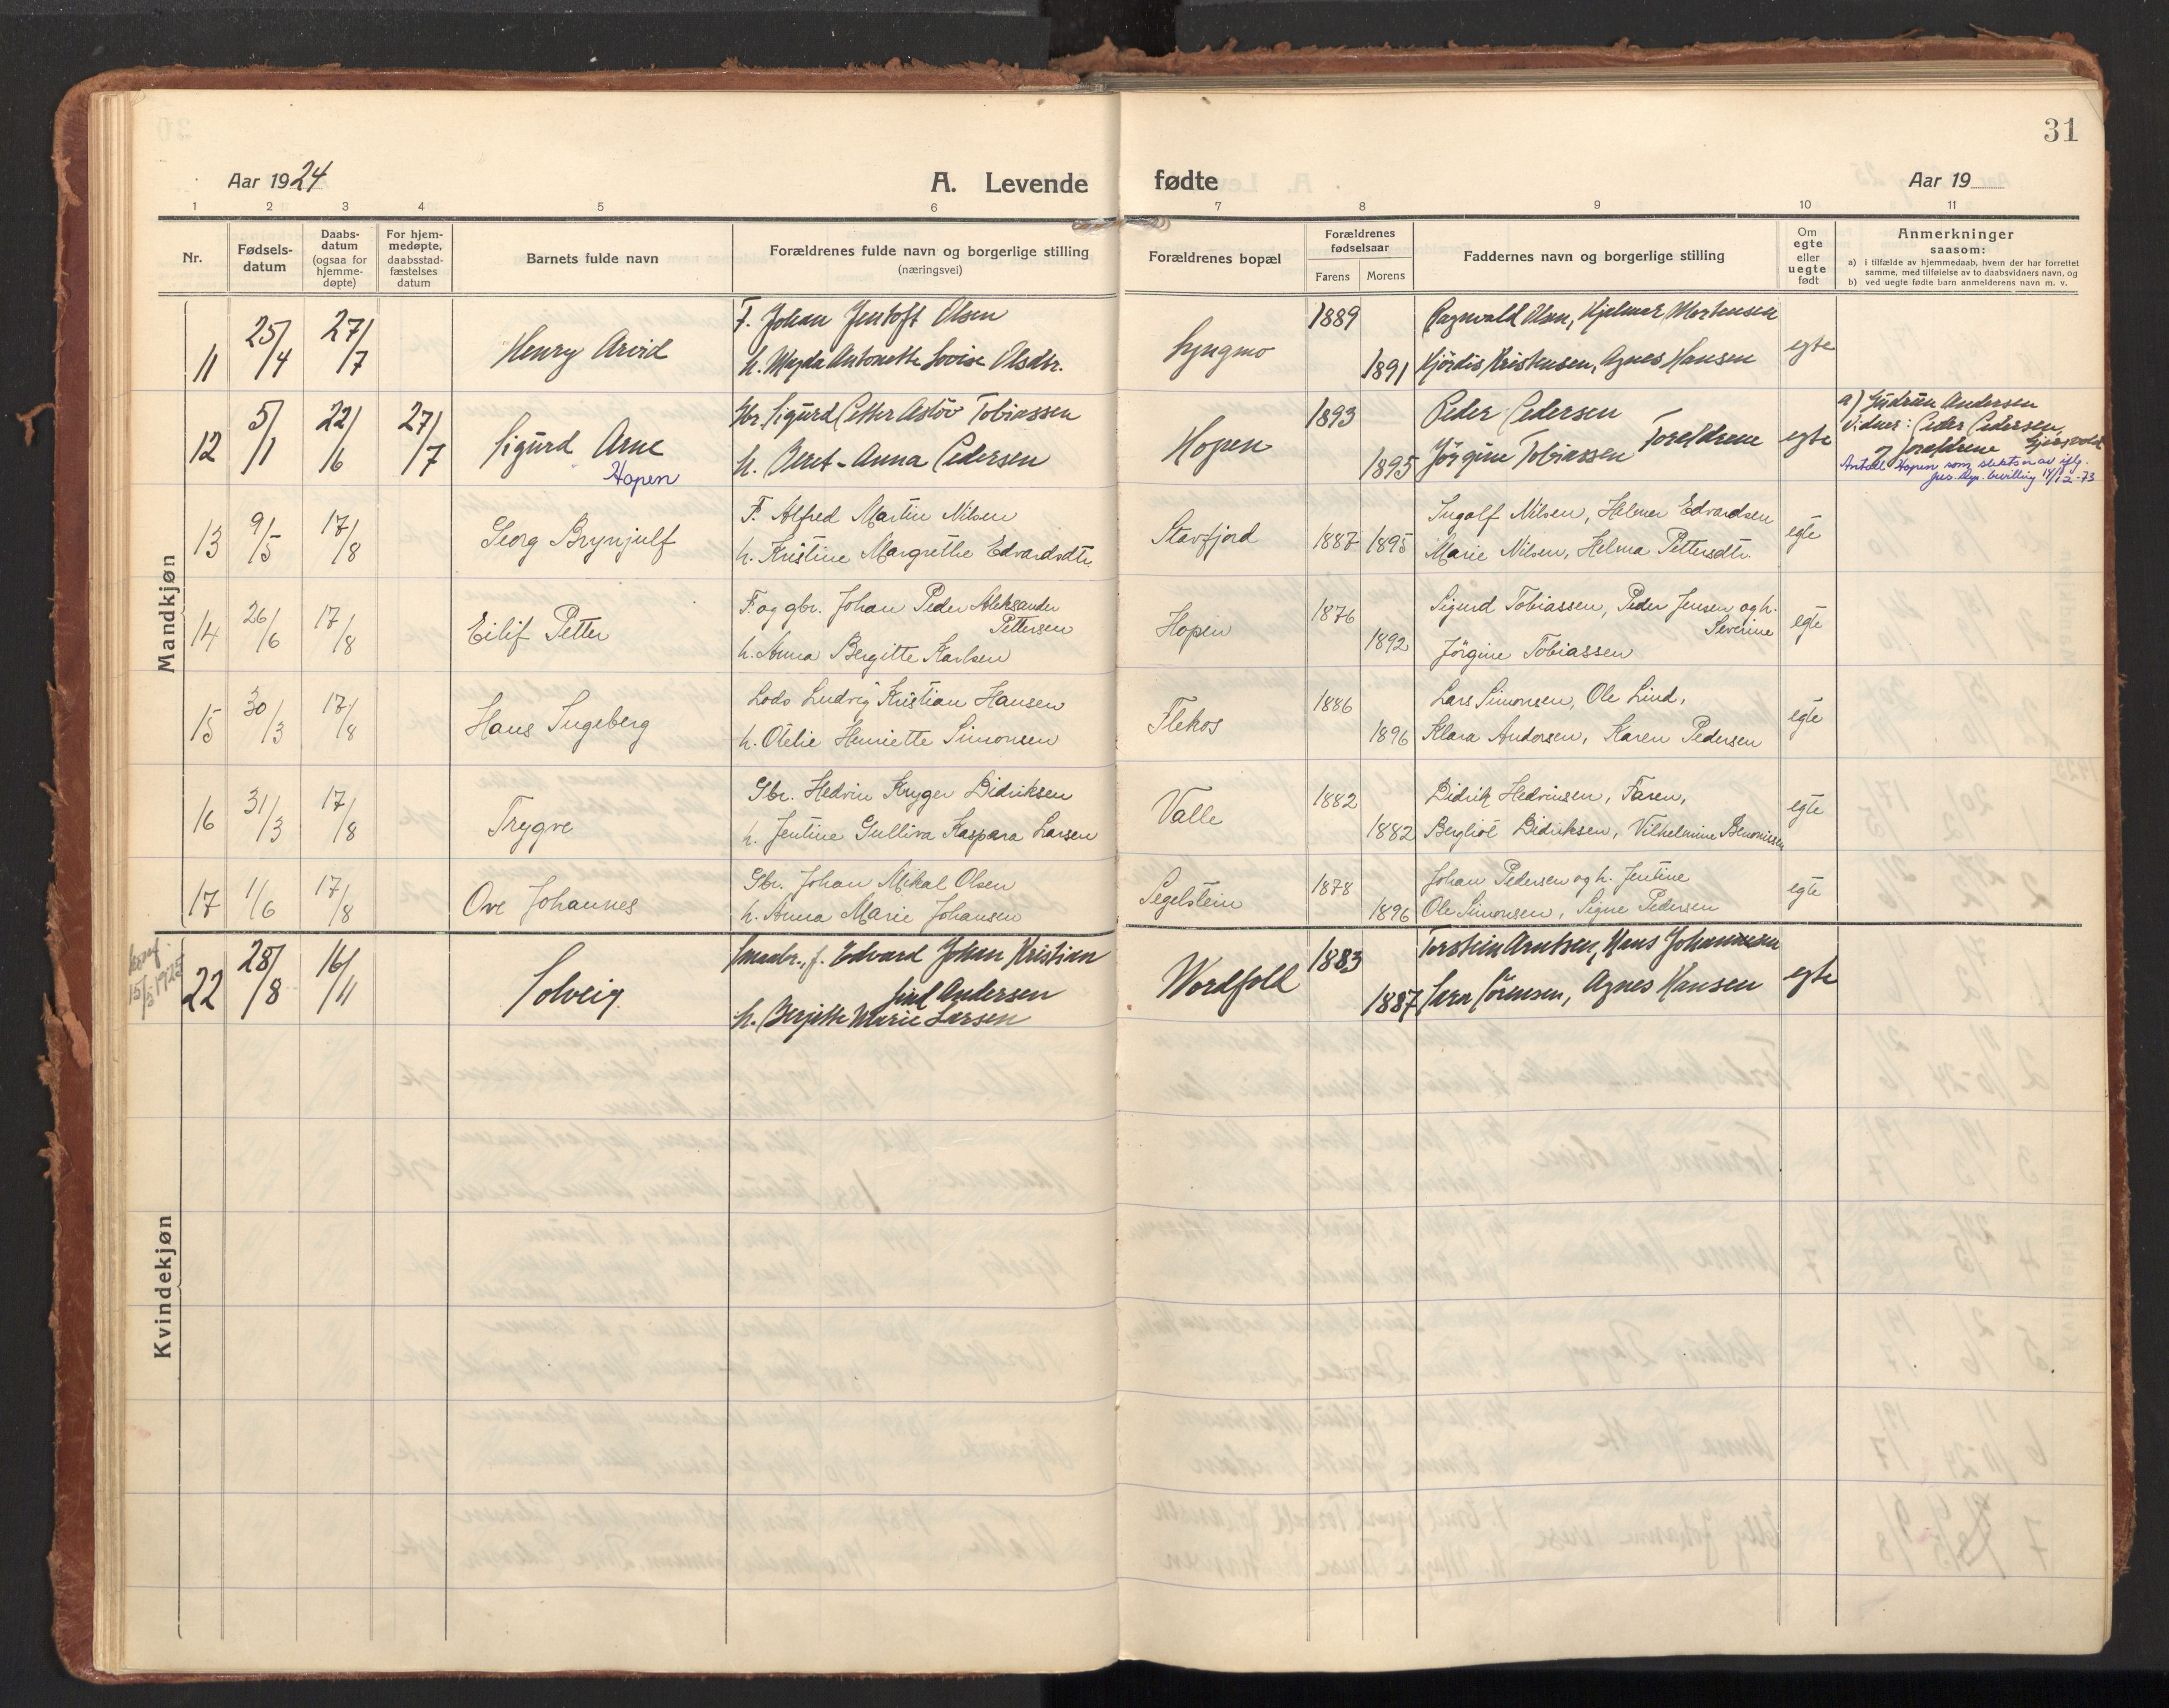 31
Aar 1924
A. Levende fødte
Aar 19
1 2 3 4 5 6 7 8 9 10 11
Nr.
Fødsels-
datum
Daabs-
datum
(ogsaa for
hjemme-
døpte)
For hjem-
medøpte,
daabsstad-
fæstelses
datum
Barnets fulde navn
Forældrenes fulde navn og borgerlige stilling
(næringsvei)
Forældrenes bopæl
Forældrenes
fødselsaar
Farens Morens
Faddernes navn og borgerlige stilling
Om
egte
eller
uegte
født
Anmerkninger
saasom:
a) i tilfælde av hjemmedaab, hvem der har forrettet
samme, med tilføielse av to daabsvidners navn, og
b) ved uegte fødte barn anmelderens navn m. v.
Mandkjøn
11 25/4 27/7 Henry Arvid
F. Johan Jentoft Olsen
h. Magda Antonette Lovise Olsdtr.
Lyngmo 1889 1891
Ragnvald Olsen, Hjelmar Mortensen
Hjördis Kristensen, Agnes Hansen
egte
12 5/1 22/6 27/7 Sigurd Arne
Hopen
Gbr. Sigurd Petter Astöv Tobiassen
h. Beret-Anna Pedersen
Hopen 1893 1895
Peder Pedersen
Jörgine Tobiassen Foreldrene
egte
a) Gudrun Andersen
Vidner: Peder Pedersen,
og foreldrene
Antatt Hopen som slektsnavn iflg.
jus. dep. bevilling 14/12-73
13 9/5 17/8 Georg Brynjulf
F. Alfred Martin Nilsen
h. Kristine Margrethe Edvardsdtr.
Stavfjord 1887 1895
Ingolf Nilsen, Helmer Edvardsen
Marie Nilsen, Helma Pettersdtr.
egte
14 26/6 17/8 Eilif Petter
F. og gbr. Johan Peder Aleksander
Pettersen
h. Anna Bergitte Karlsen
Hopen 1876 1892
Sigurd Tobiassen, Peder Jensen og h.
Severine
Jörgine Tobiassen
egte
15 30/3 17/8 Hans Ingeberg
Lods Ludvig Kristian Hansen
h. Otelie Henriette Simonsen
Flekos 1886 1896
Lars Simonsen, Ole Lind,
Klara Andersen, Karen Pedersen
egte
16 31/3 17/8 Trygve
Gbr. Hedvin Kryger Didriksen
h. Jentine Gulliva Kaspara Larsen
Valle 1882 1882
Didrik Hedvinsen, Faren,
Bergliot Didriksen, Vilhelmine Benonisen
egte
17 1/6 17/8 Ove Johannes
Gbr. Johan Mikal Olsen
h. Anna Marie Johansen
Segelstein 1878 1896
Johan Pedersen og h. Jentine
Ole Simonsen, Signe Pedersen
egte
Kvindekjøn
15/5 1925
22 28/8 16/11 Solveig
Smaabr., f. Edvard Johan Kristian
Lind Andersen
h. Bergitte Marie Larsen
Nordfold 1883 1887
Torstein Arntsen, Hans Johannesen
Sara Sörensen, Agnes Hansen
egte